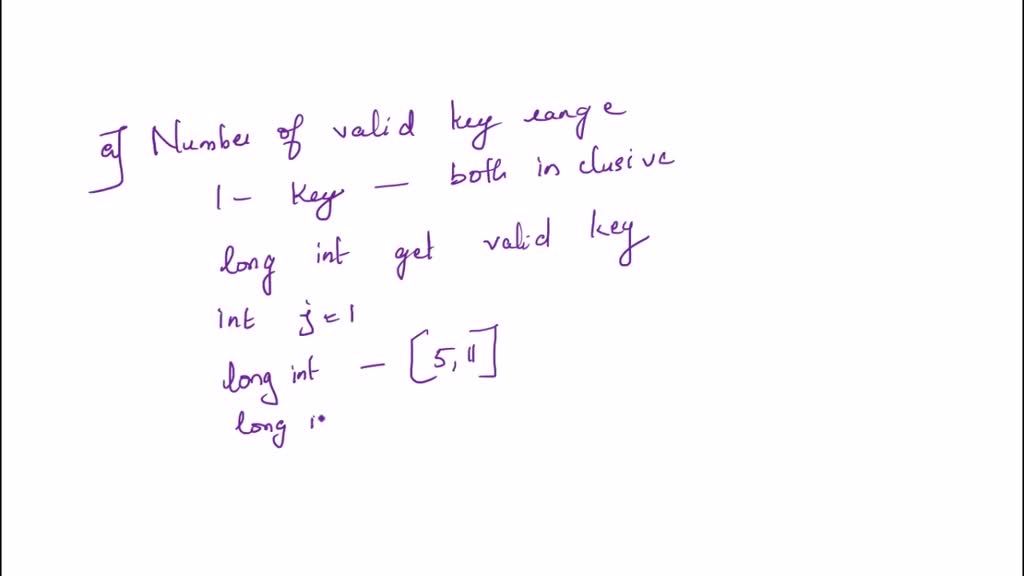 a] Number of valid key range
1 - key - both in clusive
long int get valid key
int j = 1
long int - [5, 11]
long i